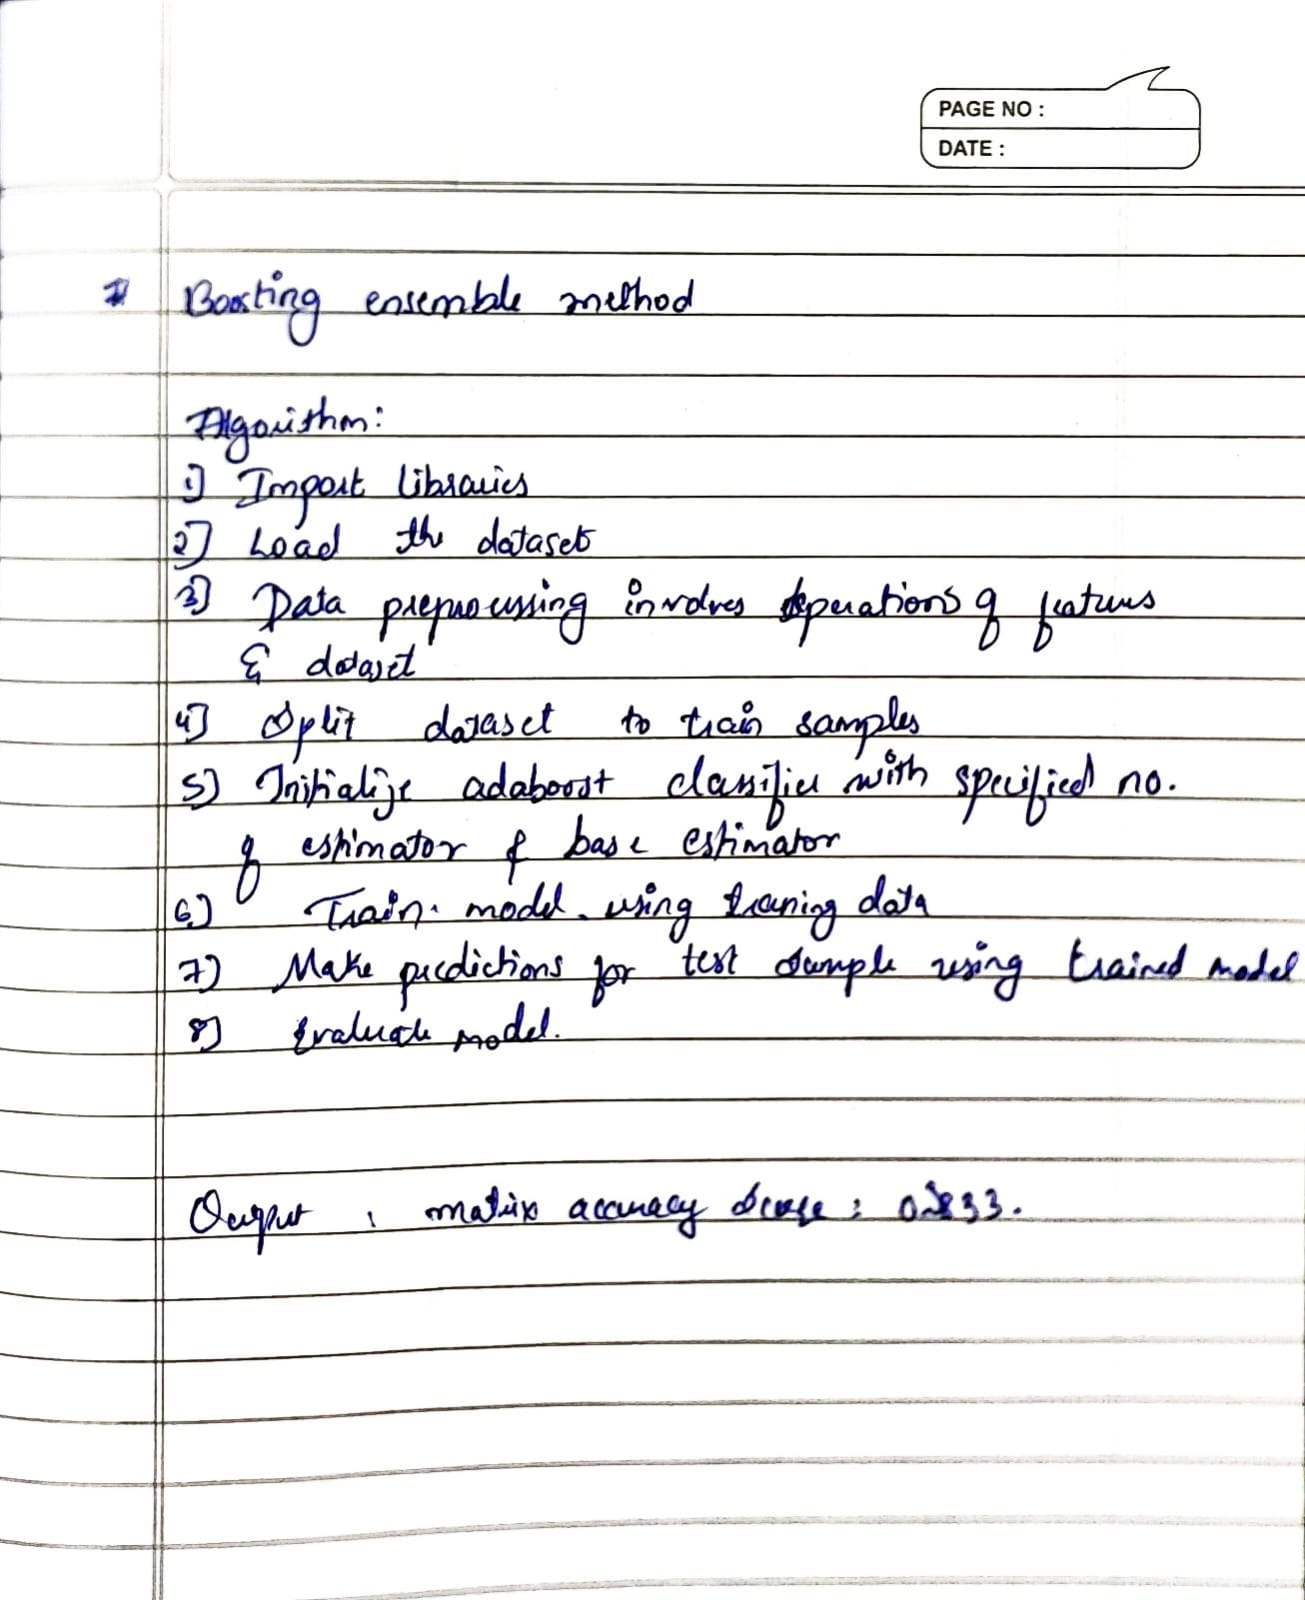 PAGE NO :
DATE :
# Boosting ensemble method
Algorithm:
1) Import libraries
2) Load the dataset
3) Data preprocessing involves operations of features
& dataset
4) Split dataset to train samples
5) Initialize adaboost classifier with specified no.
of estimator & base estimator
6) Train model using traning data
7) Make predictions for test sample using trained model
8) Evaluate model.
Output : matrix accuracy score :